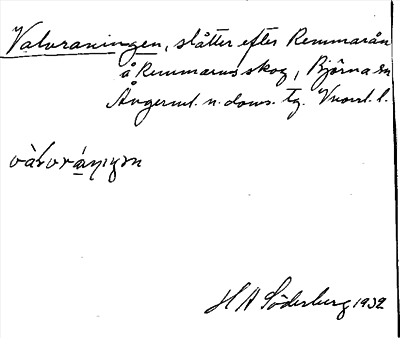 Valvraningen, slåtter efter Remmarån
å Remmarns skog, Björna sn
Ångerml. n. doms. tg. Vnorrl. l.
H A Söderburg 1932